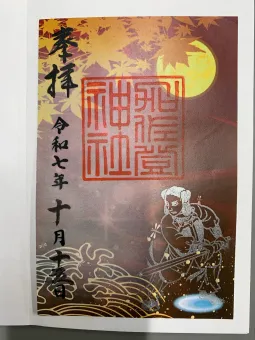 奉拝
加佐登
神社
令和七年
十月十五日